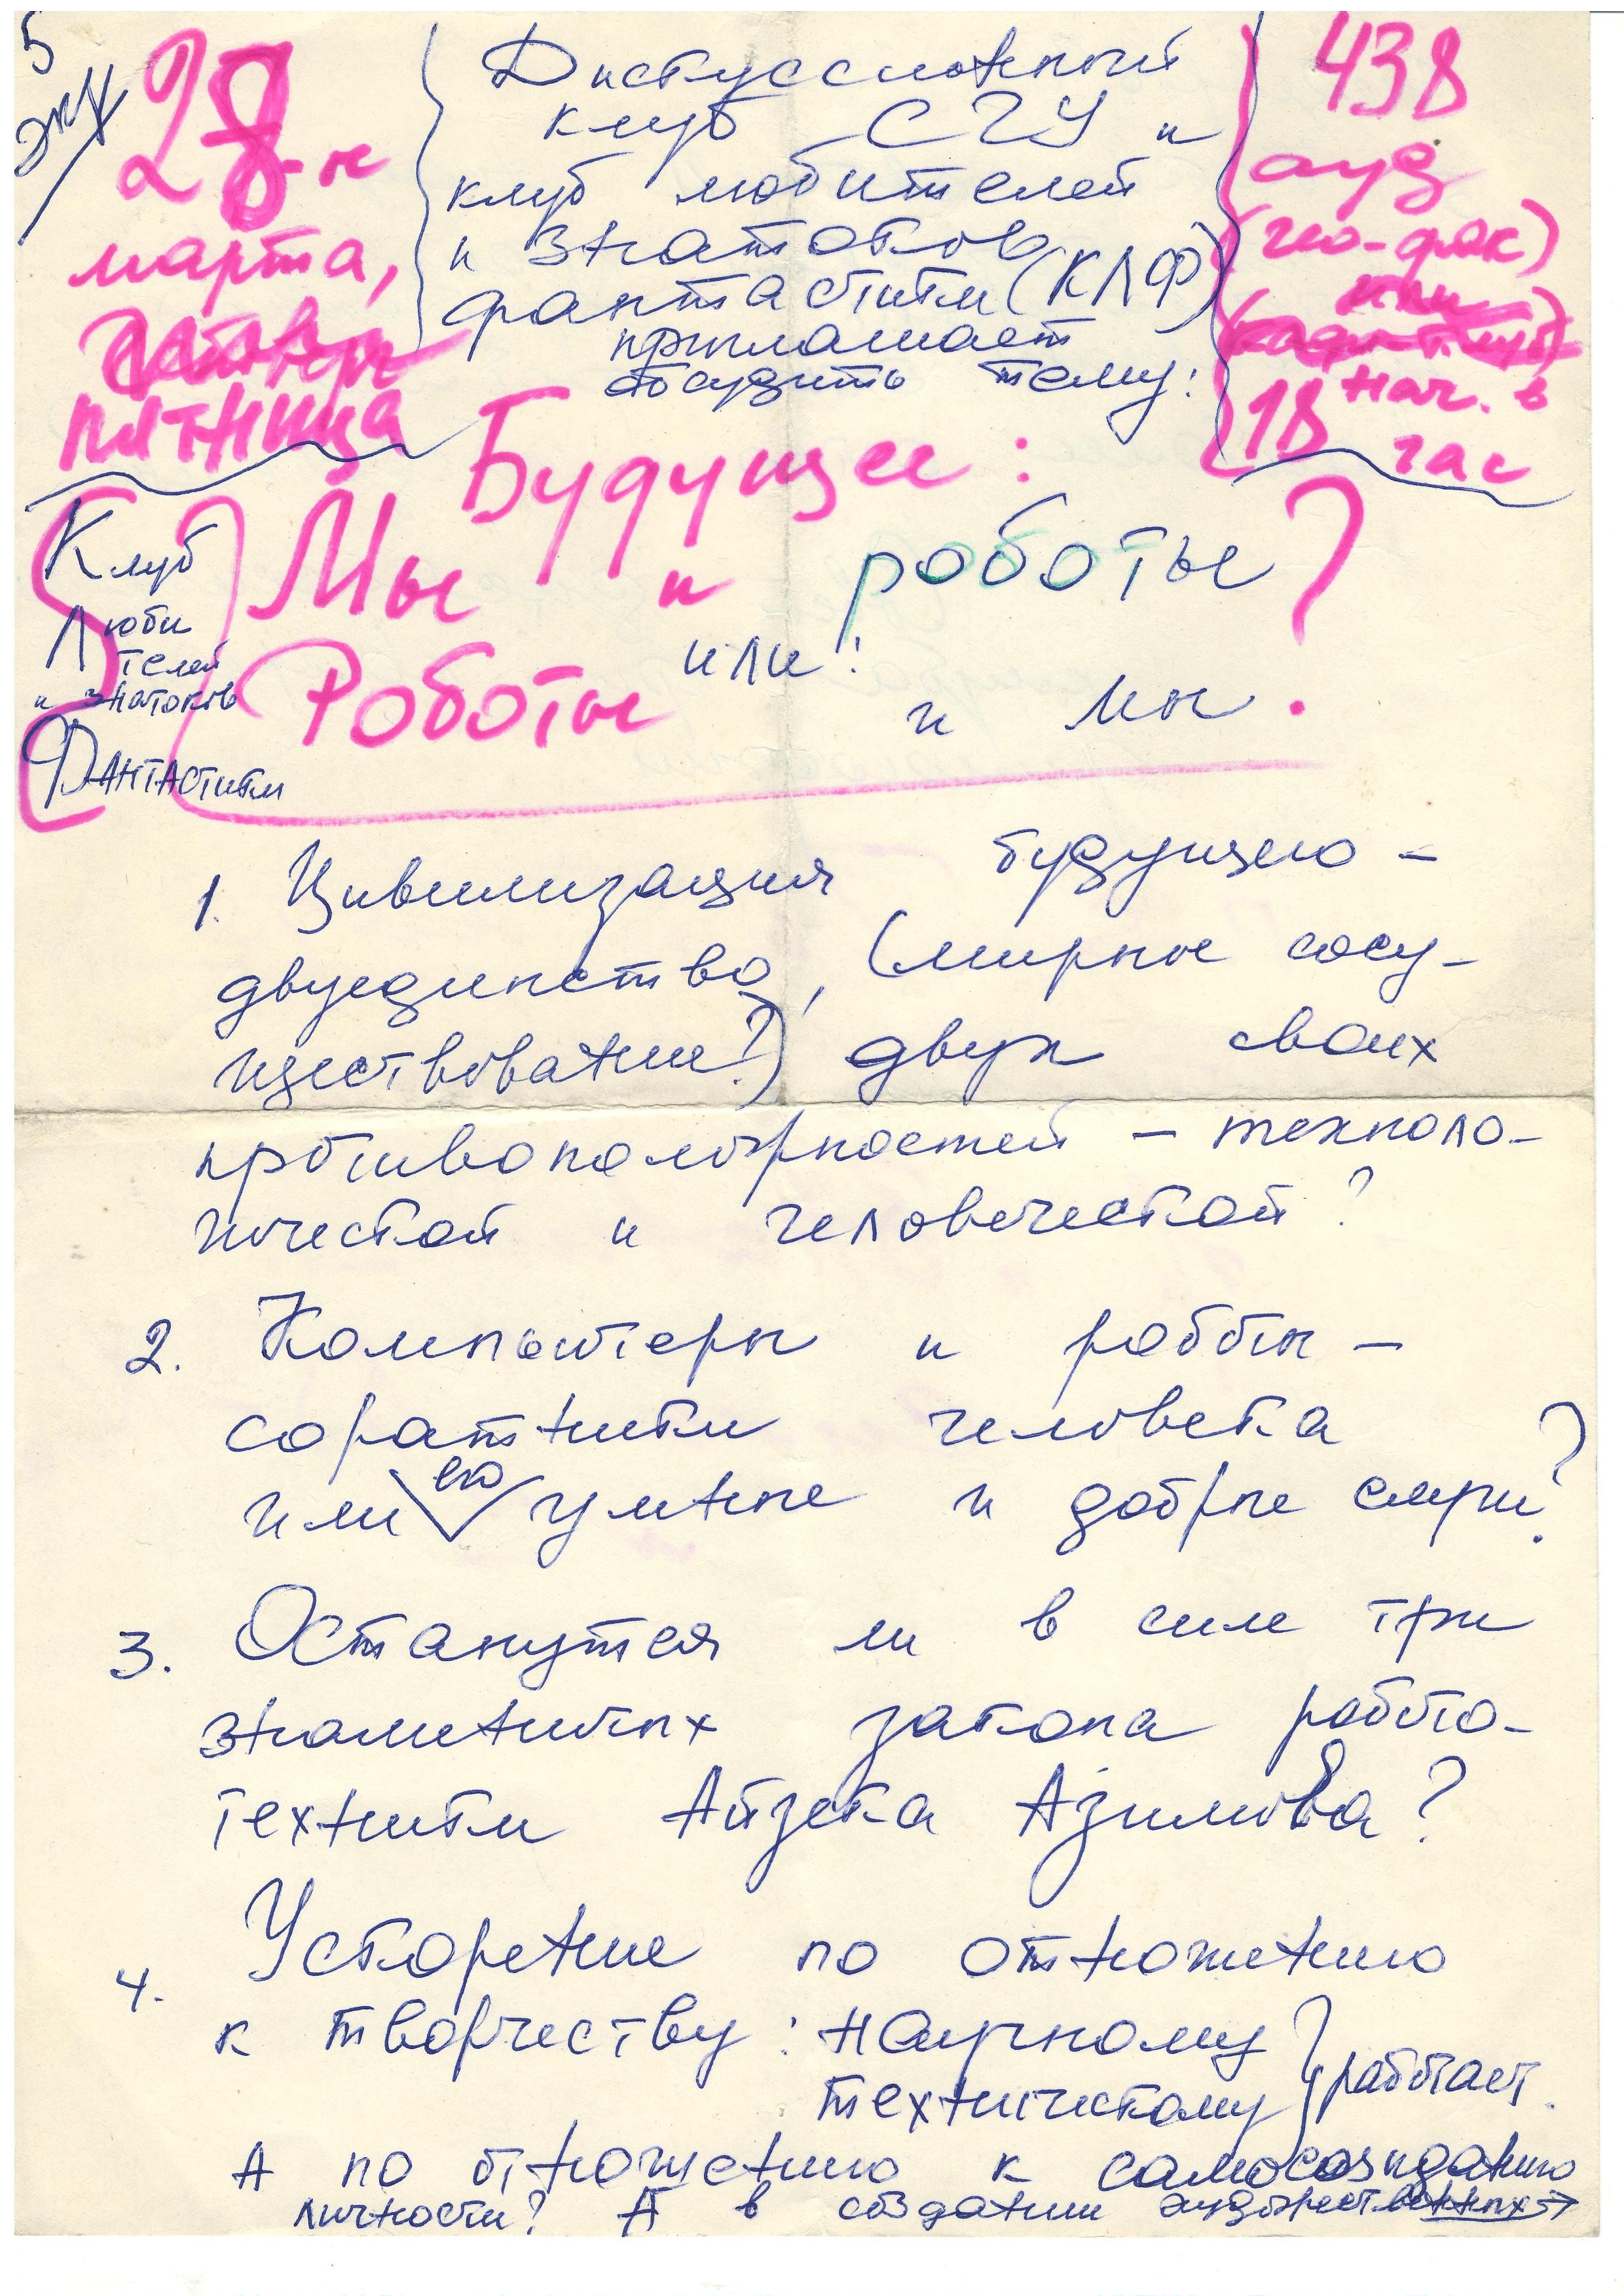 5
экз
28-го
марта,
пятница
Дискуссионный
клуб СГУ и
клуб любителей
и знатоков
фантастики (КЛФ)
приглашает
обсудить тему:
438
ауд
(гео-фак)
нач. в
18 час
Будущее:
Мы и
Роботы
или:
роботы
и мы?
Клуб
Люби
телей
и знатоков
Фантастики
1. Цивилизация будущего –
двуединство, (мирное сосу-
ществование?) двух своих
противоположностей – техноло-
гической и человеческой?
2. Компьютеры и роботы –
соратники человека
или его умные и добрые слуги?
3. Останутся ли в силе три
знаменитых закона робото-
техники Айзека Азимова?
4. Ускорение по отношению
к творчеству: научному
техническому } работает.
А по отношению к самосозиданию
личности? А в создании художественных →